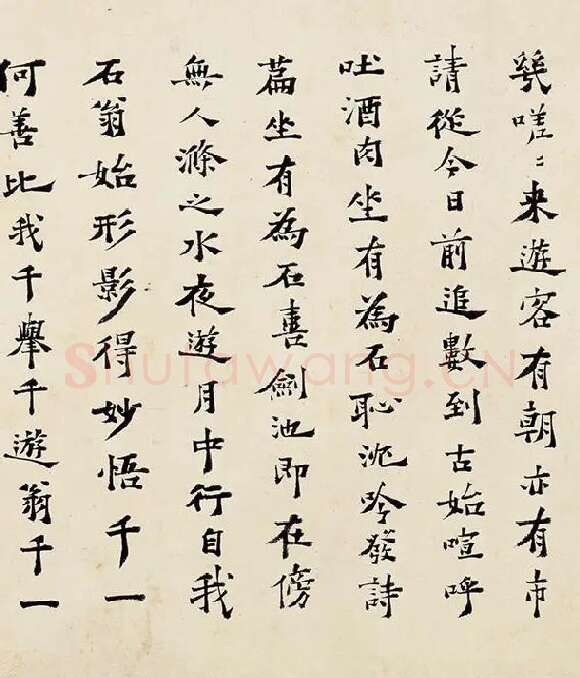 幾嗟〻来遊客有朝亦有市
請從今日前追數到古始喧呼
吐酒肉坐有為石恥沉吟發詩
篇坐有為石喜劍池即在傍
無人滌之水夜遊月中行自我
石翁始形影得妙悟千一
何善比我千舉千遊翁千一
Shufawang.CN